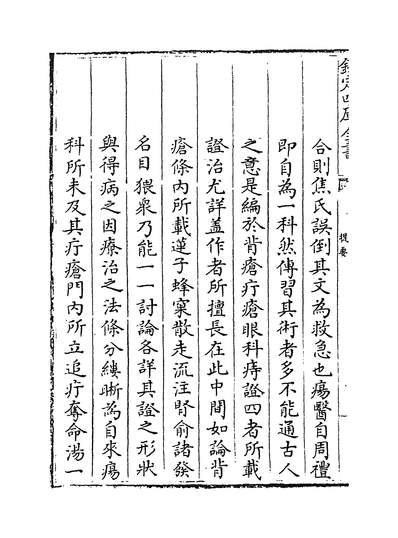 欽定四庫全書
提要
合則焦氏誤倒其文為救急也瘍醫自周禮
即自為一科然傳習其術者多不能通古人
之意是編於背瘡疔瘡眼科痔證四者所載
證治尤詳盖作者所擅長在此中間如論背
瘡條內所載蓮子蜂窠散走流注腎俞諸發
名目猥衆乃能一一討論各詳其證之形狀
與得病之因療治之法條分縷晰為自來瘍
科所未及其疔瘡門內所立追疔奪命湯一